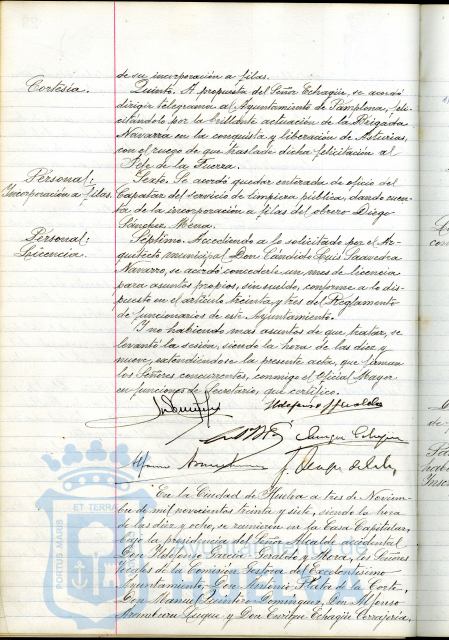 de su incorporación a filas.
Cortesía.
Quinto. A propuesta del Señor Echagüe, se acordó
dirigir telegrama al Ayuntamiento de Pamplona, feli-
citándolo por la brillante actuación de la Brigada
Navarra en la conquista y liberación de Asturias,
con el ruego de que traslade dicha felicitación al
Jefe de la Fuerza.
Personal:
Incorporación a filas.
Sexto. Se acordó quedar enterada de oficio del
Capataz del servicio de limpieza pública, dando cuen-
ta de la incorporación a filas del obrero Diego
Sánchez Mena.
Personal:
Licencia.
Séptimo. Accediendo a lo solicitado por el Ar-
quitecto municipal Don Candido Luis Saavedra
Navarro, se acordó concederle un mes de licencia
para asuntos propios, sin sueldo, conforme a lo dis-
puesto en el artículo treinta y tres del Reglamento
de funcionarios de este Ayuntamiento.
Y no habiendo mas asuntos de que tratar, se
levantó la sesión, siendo la hora de las diez y
nueve, extendiéndose la presente acta, que firman
los Señores concurrentes, conmigo el Oficial Mayor
en funciones de Secretario, que certifico.
Enrique Echagüe
En la Ciudad de Huelva a tres de Noviem-
bre de mil novecientos treinta y siete, siendo la hora
de las diez y ocho, se reunieron en la Casa Capitular,
bajo la presidencia del Señor Alcalde accidental
Don Ildefonso García Geraldo y Mora, los Señores
Vocales de la Comisión Gestora del Excelentísimo
Ayuntamiento, Don Antonio Plata de la Corte,
Don Manuel Quintero Domínguez, Don Alfonso
Aramburu Luque y Don Enrique Echagüe Correjería,
PORTUS MARIS
ET TERRAE